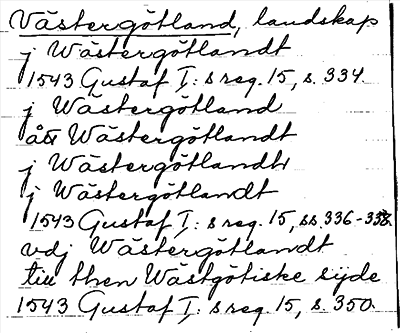 Västergötland, landskap
j Wästergötlandt
1543 Gustaf I: s reg. 15, s. 334.
j Wästergötland
átt Wästergötlandt
j Wästergötlandh
j Wästergötlandt
1543 Gustaf I: s reg. 15, ss. 336-338.
vdj Wästergötlandt
till then Wästgötiske sijde
1543 Gustaf I: s reg. 15, s. 350.